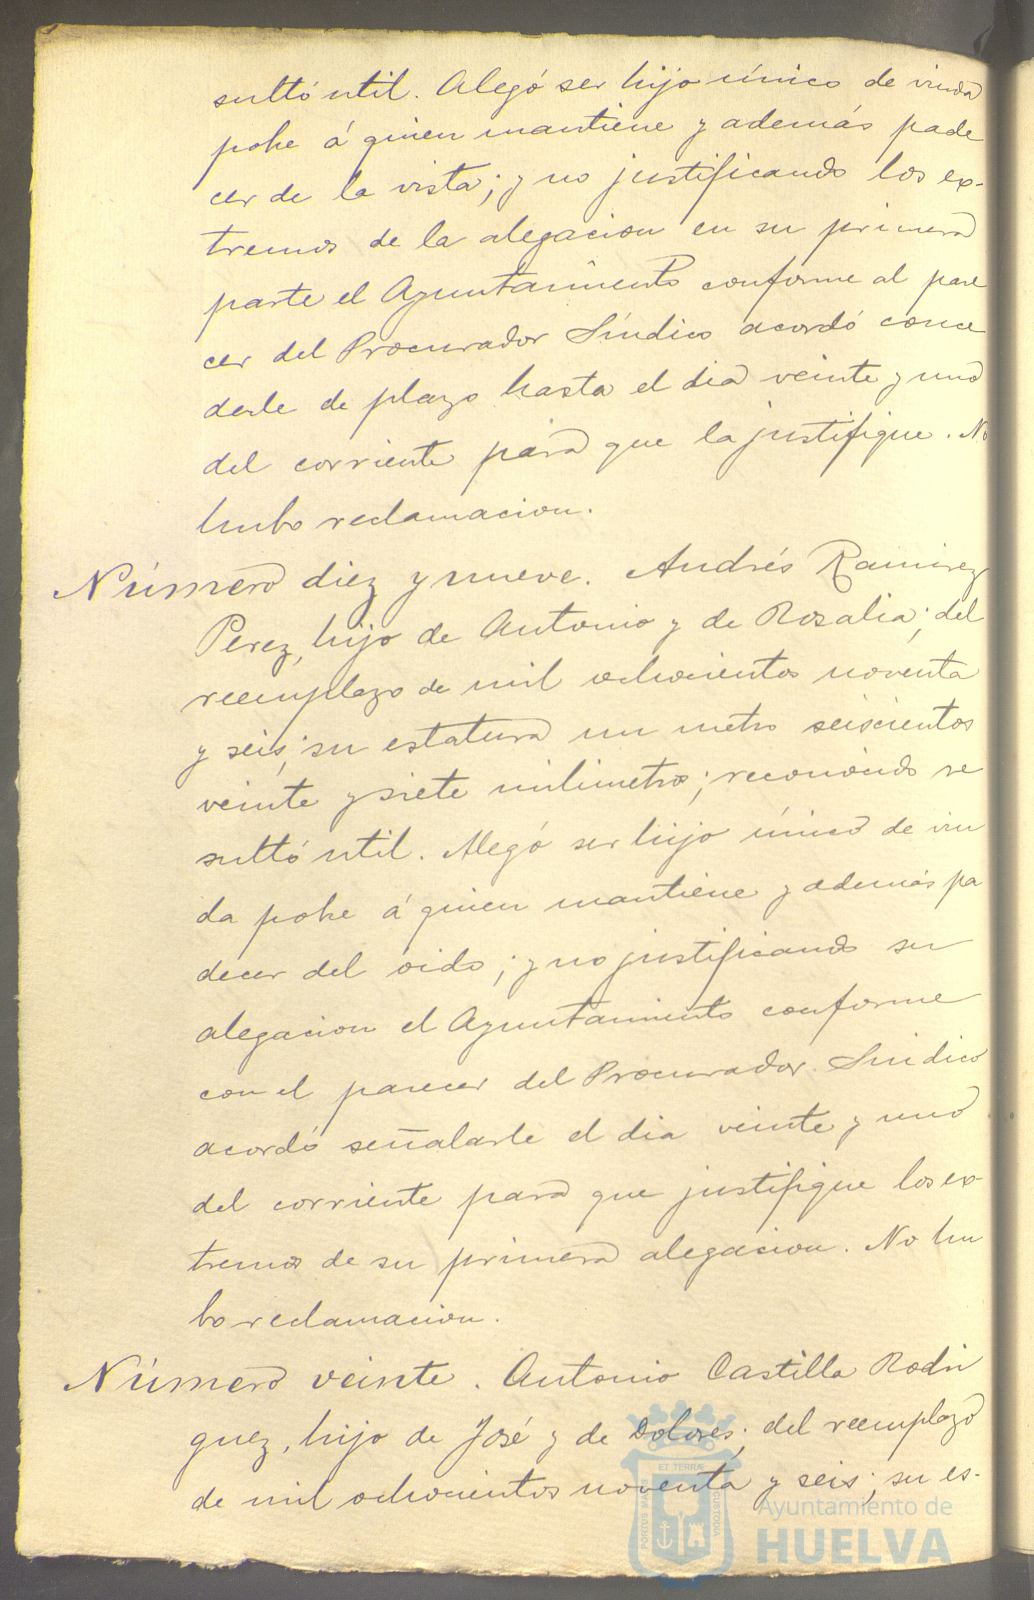 sultó util. Alegó ser hijo único de viuda
pobre á quien mantiene y además pade
cer de la vista; y no justificando los ex-
tremos de la alegacion en su primera
parte el Ayuntamiento conforme al pare
cer del Procurador Síndico acordó conce
derle de plazo hasta el dia veinte y uno
del corriente para que la justifique. No
hubo reclamacion.
Número diez y nueve. Andrés Ramirez
Perez, hijo de Antonio y de Rosalia; del
reemplazo de mil ochocientos noventa
y seis; su estatura un metro seiscientos
veinte y siete milimetros; reconocido re
sultó util. Alegó ser hijo único de viu
da pobre á quien mantiene y además pa
decer del oido; y no justificando su
alegacion el Ayuntamiento conforme
con el parecer del Procurador Sindico
acordó señalarle el dia veinte y uno
del corriente para que justifique los ex-
tremos de su primera alegacion. No hu
bo reclamacion.
Número veinte. Antonio Castilla Rodri
guez, hijo de José y de Dolores; del reemplazo
de mil ochocientos noventa y seis; su es-
PORTUS MARIS ET TERRÆ CUSTODIA
Ayuntamiento de
HUELVA